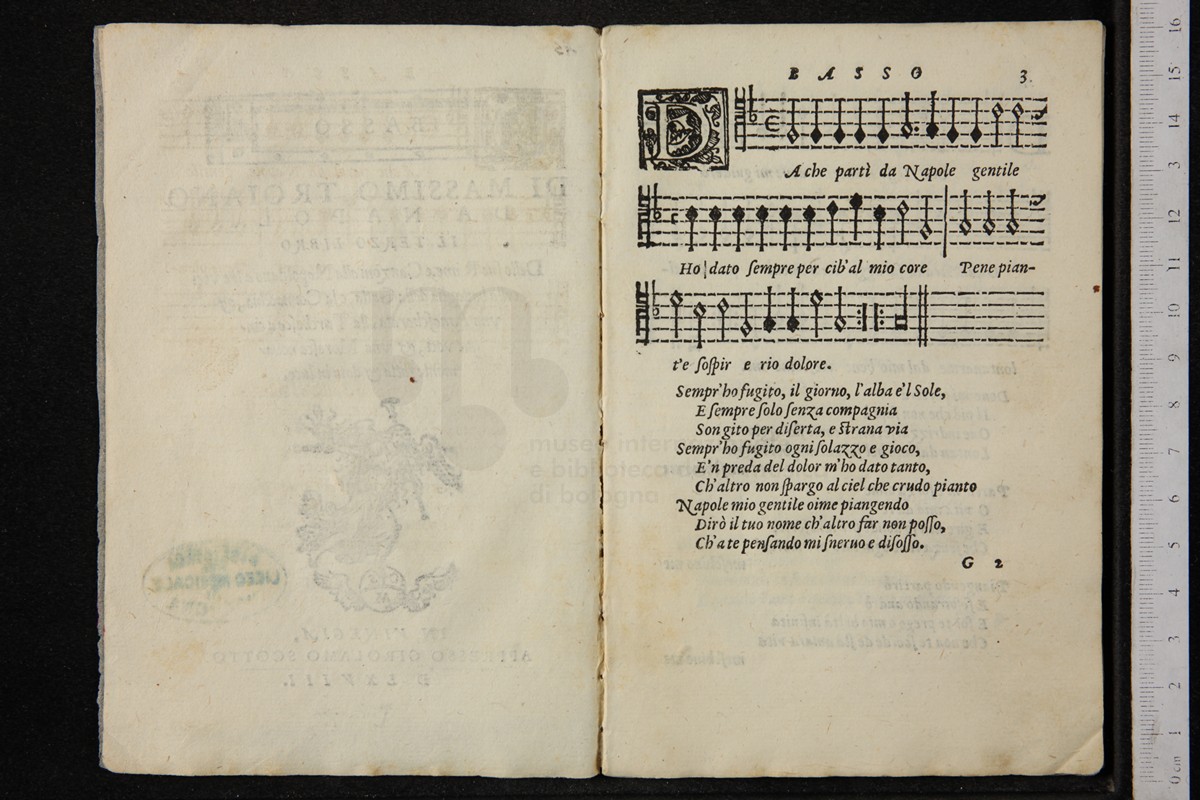 BASSO 3
DA che partì da Napole gentile
Ho dato ſempre per cib'al mio core Pene pian-
t'e ſoſpir e rio dolore.
Sempr'ho fugito, il giorno, l'alba e'l Sole,
E ſempre ſolo ſenza compagnia
Son gito per diſerta, e ſtrana via
Sempr'ho fugito ogni ſolazzo e gioco,
E'n preda del dolor m'ho dato tanto,
Ch'altro non ſpargo al ciel che crudo pianto
Napole mio gentile oime piangendo
Dirò il tuo nome ch'altro far non poſſo,
Ch'a te penſando mi ſneruo e diſoſſo.
G 2
DI MASSIMO TROIANO
DA NAPOLI
IL TERZO LIBRO
IN VINEGIA,
APPRESSO GIROLAMO SCOTTO.
museo internazionale
e biblioteca della
di bologna
0 cm 1 2 3 4 5 6 7 8 9 10 11 12 13 14 15 16